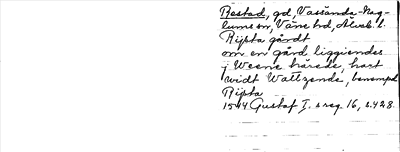 Restad, gd, Vassända-Nag-
lums sn, Väne hd, Älvsb. l.
Rijsta gårdt
om en gård liggiendes
j Weene härede, hart
widt Wattzende, benempd
Rijsta
1544 Gustaf I. s reg. 16, s. 428.